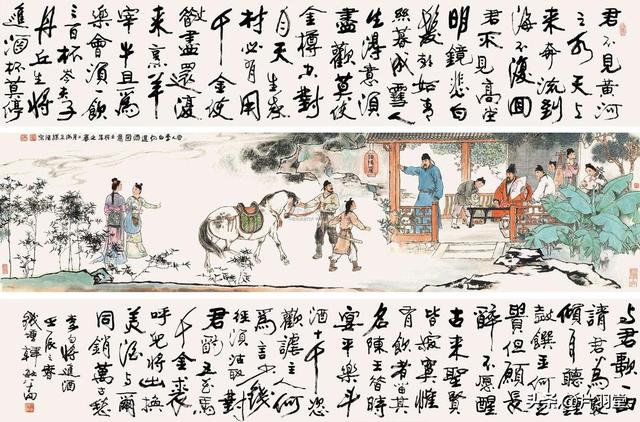 君不見黃河
之水天上
來奔流到
海不復回
君不見高堂
明鏡悲白
髮朝如青
絲暮成雪人
生得意須
盡歡莫使
金樽空對
月天生我
材必有用
千金散
盡還復
來烹羊
宰牛且為
樂會須一飲
三百杯岑夫子
丹丘生將
進酒杯莫停
與君歌一曲
請君為我
傾耳聽鐘
鼓饌玉何足
貴但願長
醉不願醒
古來聖賢
皆寂寞惟
有飲者留其
名陳王昔時
宴平樂斗
酒十千恣
歡謔主人何
為言少錢
徑須沽取對
君酌五花馬
千金裘
呼兒將出換
美酒與爾
同銷萬古愁
李白將進酒
壬辰之春
錢塘
头条 @片羽堂